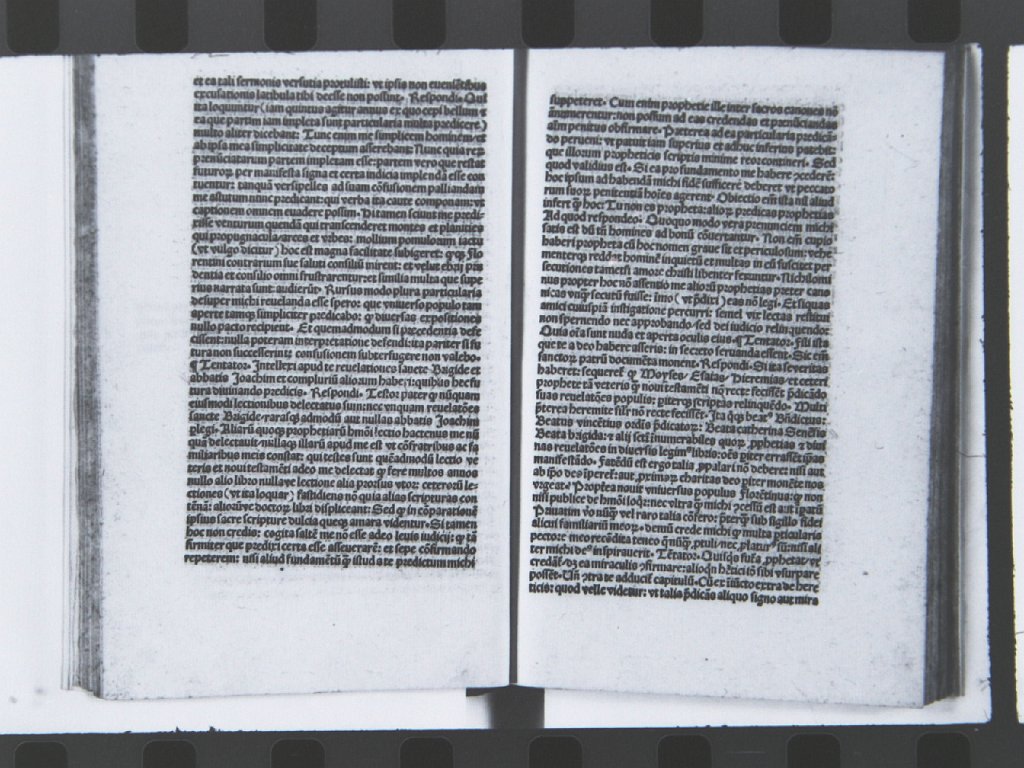 et ea tali sermonis versutia protulisti: vt ipsis non eueniētibus
excusationis latibula tibi deesse non possint. Respondi. Qui
ita loquuntur (iam quintus agitur annus ex quo cepi bellum ⁊
ea que partim iam impleta sunt particularia multa predicere)
multo aliter dicebant: Tunc enim me simplicem hominem: et
ab ipsa mea simplicitate deceptum asserebant: Nunc quia re
prenūciatarum partem impletam esse: partem vero que restat
futuroꝝ per manifesta signa et certa indicia implendā esse con
tuentur: tanquā versipelles ad suam cōfusionem palliandam
me astutum nunc predicant: qui verba ita caute componam: vt
captionem omnem euadere possim. Di tamen sciunt me predi-
xisse venturum quendā qui transcenderet montes et planicies
qui propugnacula arces et vrbes: mollium pomulorum iactu
(vt vulgo dicitur) hoc est magna facilitate subigeret: ꝙꝫ Flo
rentini contrarium sue saluti consiliū inirent: et velut ebrij pru
dentia et consilio omni frustrarentur: et similia multa que supe
rius narrata sunt audierūt. Rursus modo plura particularia
desuper michi reuelanda esse spero: que vniuerso populo tam
aperte tamqꝫ simpliciter predicabo: ꝙ diuersas expositiones
nullo pacto recipient. Et quemadmodum si precedentia defe
cissent: nulla poteram interpretatione defendi: ita pariter si fu
tura non successerint: confusionem subterfugere non valebo.
¶ Tentator. Intellexi apud te reuelationes sancte Brigide et
abbatis Joachim et complurium aliorum haberi: quibus hec fu
tura diuinando predicis. Respondi. Testor pater ꝙ nūquam
eiusmodi lectionibus delectatus sum: nec vnquam reuelatōes
sancte Brigide: rarasqꝫ admodū aut nullas abbatis Joachim
perlegi. Aliarū quoqꝫ prophetiarū hmōi lectio hactenus me nū
quā delectauit: nullaqꝫ illarū apud me est vt cōfratribus ac fa
miliaribus meis constat: qui testes sunt quēadmodū lectio ve
teris et noui testamēti adeo me delectat ꝙ fere multos annos
nullo alio libro nullave lectione alia prorsus vtor: ceterorū le-
ctiones (vt ita loquar) fastidiens nō quia alias scripturas con
tēnā: aliorūve doctoꝝ libri displiceant: Sed ꝙ in cōparationē
ipsius sacre scripture dulcia queqꝫ amara videntur. Si tamen
hoc non credis: cogita saltē me nō esse adeo leuis iudicij: ꝙ tā
firmiter que predixi certa esse asseuerarē: et sepe cōfirmando
repeterem: nisi aliud fundamētū ꝙ istud a te predictum michi
suppeteret. Cum enim prophetie ille inter sacros canones nō
annumerentur: non possum ad eas credendas et prenūciandas
alim penitus obfirmare. Preterea ad ea particularia predicā
do perueni: vt patuit iam superius et adhuc inferius patebit:
que illorum propheticis scriptis minime reor contineri. Sed
quod validius est. Si ea pro fundamento me habere ꝯcederē:
hoc ipsum ad habendā michi fidē sufficere deberet vt peccato
rum suoꝝ penitentiā hoīes agerent. Obiectio em̄ ista nil aliud
infert ꝙ hoc: Tu non es propheta: alioꝝ predicas prophetias
Ad quod respondeo. Quoquo modo vera prenunciem michi
satis est dū tn̄ homines ad bonū cōuertantur. Non em̄ cupio
haberi propheta cū hoc nomen graue sit et periculosum: vehe
menterqꝫ reddat hominē inquietū et multas in eū suscitet per
secutiones tametsi amore christi libenter ferantur. Nichilomi
nus propter hoc nō assentio me alioꝝ prophetias preter cano
nicas vnqꝫ secutū fuisse: imo (vt p̄dixi) eas nō legi. Et si quas
amici cuiuspiā instigatione percurri: semel vix lectas restitui
non spernendo nec approbando: sed dei iudicio relinquendo:
Quia oīa sunt nuda et aperta oculis eius. ¶ Tentator. Fili ista
que te a deo habere asseris: in secreto seruanda essent. Sic em̄
sanctoꝝ patrū documēta monent. Respondi. Si ita seueritas
haberet: sequeret ꝙ Moyses, Esaias, Hieremias, et ceteri
prophete tā veteris ꝙ noui testamēti nō recte fecissēt p̄dicādo
suas reuelatōes populis: pariterqꝫ scriptas relinquēdo. Multi
preterea heremite sil'r nō recte fecissēt. Ita qꝫ beatꝰ Bn̄dictus:
Beatus vincētius ordīs p̄dicatoꝝ: Beata catherina Senēsis
Beata brigida: ⁊ alij scti inumerabiles quoꝝ ꝓphetias ⁊ diui
nas reuelatōes in diuersis legimꝰ libris: oēs pariter errassēt ip̄as
manifestādo. Fatēdū est ergo talia ꝓpalari nō deberet nisi aut
ab ip̄o deo īperetꝛ: aut proximoꝝ charitas deo pariter monēte nos
vrgeat. Propterea nouit vniuersus populus Florētinus: ꝙ non
nisi publice de hmōi loqꝛ: nec vltra ꝙ michi ꝯcessū est aut iparū
Priuatim vo nūqꝫ vel raro talia cōfero: preterqꝫ sub sigillo fidei
alicui familiariū meoꝝ. demū crede michi ꝙ multa particularia
pectore meo recōdita teneo q̄ nūqꝫ ꝓtuli: nec ꝓlaturꝰ sū: nisi ali
ter michi deꝰ inspirauerit. Tētator. Quisqꝫ fuīsa ꝓphetaꝛ vt
credat. vꝫ ea miraculis ꝯfirmare: alioqn̄ hētici tō sibi vsurpare
possēt. Un̄ ꝯtra te adducit capitulū. Cū ex iniūcto extra de here
ticis: quod velle videtur: vt talia p̄dicās aliquo signo aut mira